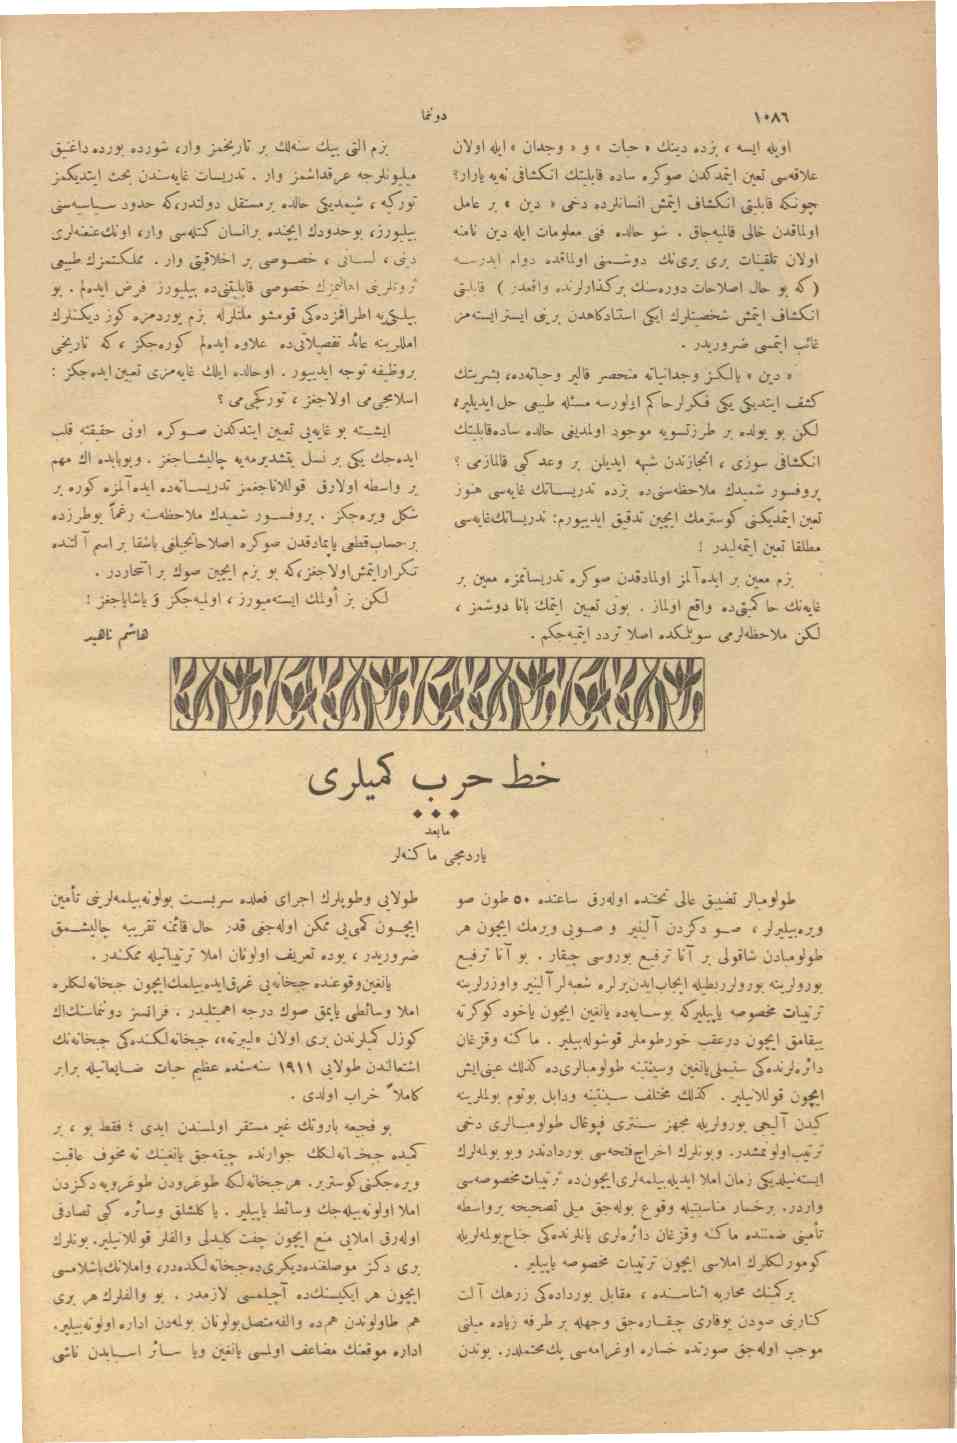 ١٠٨٦
دونما
اويله ايسه ، بزده دينك « حيات » و « وجدان » ايله اولان
علاقه‌سى تعين ايتمدكدن صوكره ساده قابليتك انكشافى نه‌يه يارار؟
چونكه قابليتى انكشاف ايتمش انسانلرده دخى « دين » بر عامل
اولماقدن خالى قالميه‌جاق . شو حالده فنى معلومات ايله دين نامنه
اولان تلقينات برى برى‌نك دوشمنى اولماقده دوام ايدرسه
(كه بو حال اصلاحات دوره‌سنك بركذارلرنده واقعدر ) قابليتى
انكشاف ايتمش شخصيتلرك ايكى استنادكاهدن برينى ايستر ايسته‌مز
غائب ايتمسى ضروريدر .
« دين » يالكز وجدانياته منحصر قالير وحياته‌ده، بشريتك
كشف ايتديكى يكى فكرلر حاكم اولورسه مسئله طبيعى حل ايديلير،
لكن بو يولده بر طرز تسويه موجود اولمديغى حالده ساده قابليتك
انكشافى سوزى ، انجازندن شبهه ايديلن بر وعد كبى قالمازمى ؟
پروفسور شميدك ملاحظه‌سنى‌ده بزده تدريساتك غايه‌سى هنوز
تعين ايتمديكنى كوسترمك ايچين تدقيق ايدييورم: تدريساتك غايه‌سى
مطلقا تعين ايتمه‌ليدر !
بزم معين بر ايده‌آلمز اولمادقدن صوكره تدريساتمزه معين بر
غايه‌نك حاكميتى‌ده واقع اولماز . بونى تعيين ايتمك بانا دوشمز ،
لكن ملاحظه‌لرمى سويلمكده اصلا تردد ايتميه‌جكم .
بزم التى بيك سنه‌لك بر تاريخمز وار، شورده بورده داغنيق
ميليونلرجه عرقداشمز وار . تدريسات غايه‌سندن بحث ايتديكمز
توركيه ، شيمديكى حالده برمستقل دولتدر،كه حدود سياسيه‌سنى
بيليورز، بوحدودك ايچنده برانسان كتله‌سى وار، اونك عنعنه‌لرى
دينى ، لسانى ، خصوصى بر اخلاقيتى وار . مملكتمزك طبيعى
ثروتلرينى اهالمزك خصوصى قابليتنى‌ده بيليورز فرض ايده‌لم . بو
بيلكى‌يه اطرافمزده‌كى قومشو ملتلرله بزم يوردمزه كوز ديكنلرك
امللرينه عائد تفصيلاتى‌ده علاوه ايده‌لم كوره‌جكز ، كه تاريخى
بروظيفه توجه ايدييور . اوحالده ايلك غايه‌مزى تعيين ايده‌جكز :
اسلامجى‌مى اولاجغز ، توركجى‌مى ؟
ايشته بو غايه‌يى تعيين ايتدكدن صوكره اونى حقيقته قلب
ايده‌جك يكى بر نسل يتشديرمه‌يه چاليشاجغز . وبوبابده اك مهم
بر واسطه اولارق قوللاناجغمز تدريساته‌ده ايده‌آلمزه كوره بر
شكل ويره‌جكز . پروفسور شميدك ملاحظه‌سنه رغماً بوطرزده
برحساب قطعى ياپمادقدن صوكره اصلاحاتجيلغى باشقا بر اسم آلتنده
تكرار ايتمش اولاجغز،كه بو بزم ايچين صوك بر انتحاردر .
لكن بز أولمك ايسته‌ميورز ، اولميه‌جكز و ياشاياجغز !
هاشم ناهيد
خط حرب كميلرى
مابعد
ياردمجى ماكنه‌لر
طولومبالر تضييق عالى تحتنده اوله‌رق ساعتده ٥٠ طون صو
ويره‌بيليرلر ، صو دكزدن آلينير و صويى ويرمك ايچون هر
طولومبادن شاقولى بر آنا ترفيع بوروسى چيقار . بو آنا ترفيع
بورولرينه بورولر ربطيله ايجاب ايدن يرلره شعبه‌لر آلينير واوزرلرينه
ترتيبات مخصوصه ياپيليركه بوسايه‌ده يانغين ايچون ياخود كوكرته
ييقامق ايچون درعقب خورطوملر قوشوله‌بيلير . ماكنه وقزغان
دائره‌لرنده‌كى ستيملى يانغين وسينتنه طولومبالرى‌ده كذلك عينى ايش
ايچون قوللانيلير . كذلك مختلف سينتينه ودابل بوتوم بولملرينه
كيدن آليجى بورولريله مجهز سنترى فيوغال طولومبالرى دخى
ترتيب اولونمشدر. وبونلرك اخراج فتحه‌سى بوردادندر وبو بولمه‌لرك
ايسته‌نيلديكى زمان املا ايديله‌بيلمه‌لرى ايچون‌ده ترتيبات مخصوصه‌سى
واردر. برخسار مناسبتيله وقوع بوله‌جق ميلى تصحيحه برواسطه
تأمينى ضمننده ماكنه وقزغان دائره‌لرى يانلرنده‌كى جناح بولمه‌لريله
كومورلكلرك املاسى ايچون ترتيبات مخصوصه ياپيلير .
بركمينك محاربه اثناسنده ، مقابل بورداده‌كى زرهك آلت
كنارينى صودن يوقارى چيقاره‌جق وجهله بر طرفه زياده ميلنى
موجب اوله‌جق صورتده خساره اوغرامه‌سى پك محتملدر. بوندن
طولايى وطوپلرك اجراى فعلده سربست بولونه‌بيلمه‌لرينى تأمين
ايچون كمى‌يى ممكن اوله‌جغى قدر حال قائمه تقريبه چاليشمق
ضروريدر ، بوده تعريف اولونان املا ترتيباتيله ممكندر .
يانغين وقوعنده جبخانه‌يى غرق ايده‌بيلمك ايچون جبخانه‌لكلره
املا وسائطى ياپمق صوك درجه اهميتليدر . فرانسز دوننماسنك اك
كوزل كميلرندن برى اولان «ليبرته»، جبخانه‌لكنده‌كى جبخانه‌نك
اشتعالندن طولايى ١٩١١ سنه‌سنده عظيم حيات ضايعاتيله برابر
كاملاً خراب اولدى .
بو فجيعه باروتك غير مستقر اولمسندن ايدى ؛ فقط بو ، بر
كميده جبخانه‌لك جوارنده چيقه‌جق يانغينك نه مخوف عاقبت
ويره‌جكنى كوسترير. هر جبخانه‌لكه طوغرودن طوغرويه دكزدن
املا اولونه‌بيله‌جك وسائط ياپيلير . ياكلشلق وسائره كبى تصادفى
اوله‌رق املايى منع ايچون چفت كليدلى والفلر قوللانيلير. بونلرك
برى دكز موصلغنده ديكرى‌ده جبخانه‌لكده‌در، واملانك باشلامسى
ايچون هر ايكيسنك‌ده آچيلمسى لازمدر . بو والفلرك هر برى
هم طاولوندن هم‌ده والفه متصل بولونان بولمه‌دن اداره اولونه‌بيلير.
اداره موقعنك مضاعف اولمسى يانغين ويا سائر اسبابدن ناشى